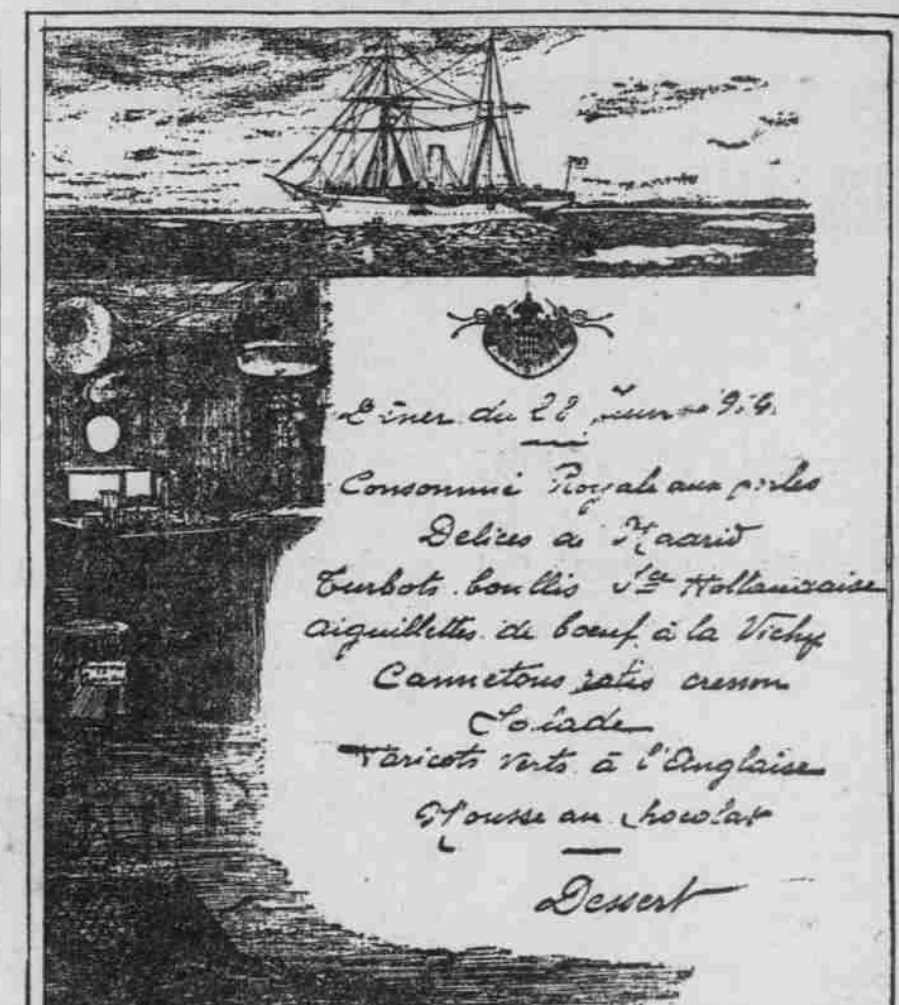 Diner du 28
Consommé Royale aux perles
Delices de Madrid
Turbots bouillis Sce Hollandaise
aiguillettes de boeuf à la Vichy
Cannetons rotis cresson
Salade
Haricots verts à l'Anglaise
Mousse au chocolat
Dessert